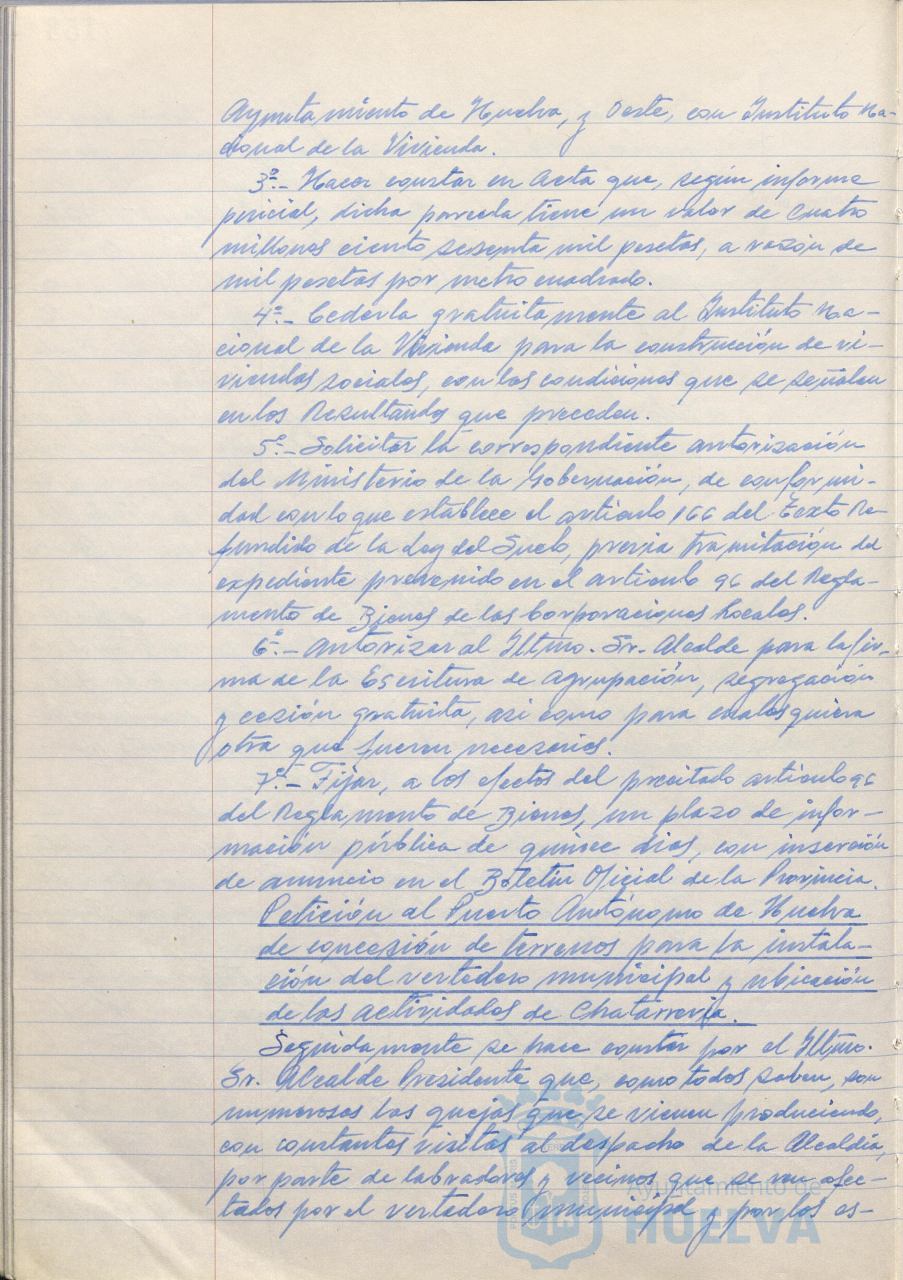 Ayuntamiento de Huelva, y Oeste, con Instituto Na-
cional de la Vivienda.
3º.- Hacer constar en Acta que, según informe
pericial, dicha parcela tiene un valor de Cuatro
millones ciento sesenta mil pesetas, a razón de
mil pesetas por metro cuadrado.
4º.- Cederla gratuitamente al Instituto Na-
cional de la Vivienda para la construcción de vi-
viendas sociales, con las condiciones que se señalan
en los Resultandos que preceden.
5º.- Solicitar la correspondiente autorización
del Ministerio de la Gobernación, de conformi-
dad con lo que establece el artículo 166 del Texto Re-
fundido de la Ley del Suelo, previa tramitación del
expediente prevenido en el artículo 96 del Regla-
mento de Bienes de las Corporaciones Locales.
6º.- Autorizar al Iltmo. Sr. Alcalde para la fir-
ma de la Escritura de Agrupación, segregación
y cesión gratuita, así como para cualesquiera
otra que fueren necesarios.
7º.- Fijar, a los efectos del precitado artículo 96
del Reglamento de Bienes, un plazo de infor-
mación pública de quince días, con inserción
de anuncio en el Boletín Oficial de la Provincia.
Petición al Puerto Autónomo de Huelva
de concesión de terrenos para la instala-
ción del vertedero municipal y ubicación
de las actividades de Chatarrería.
Seguidamente se hace constar por el Iltmo.
Sr. Alcalde Presidente que, como todos saben, son
numerosas las quejas que se vienen produciendo,
con constantes visitas al despacho de la Alcaldía,
por parte de labradores y vecinos que se ven afec-
tados por el vertedero municipal y por los es-
Ayuntamiento de
HUELVA